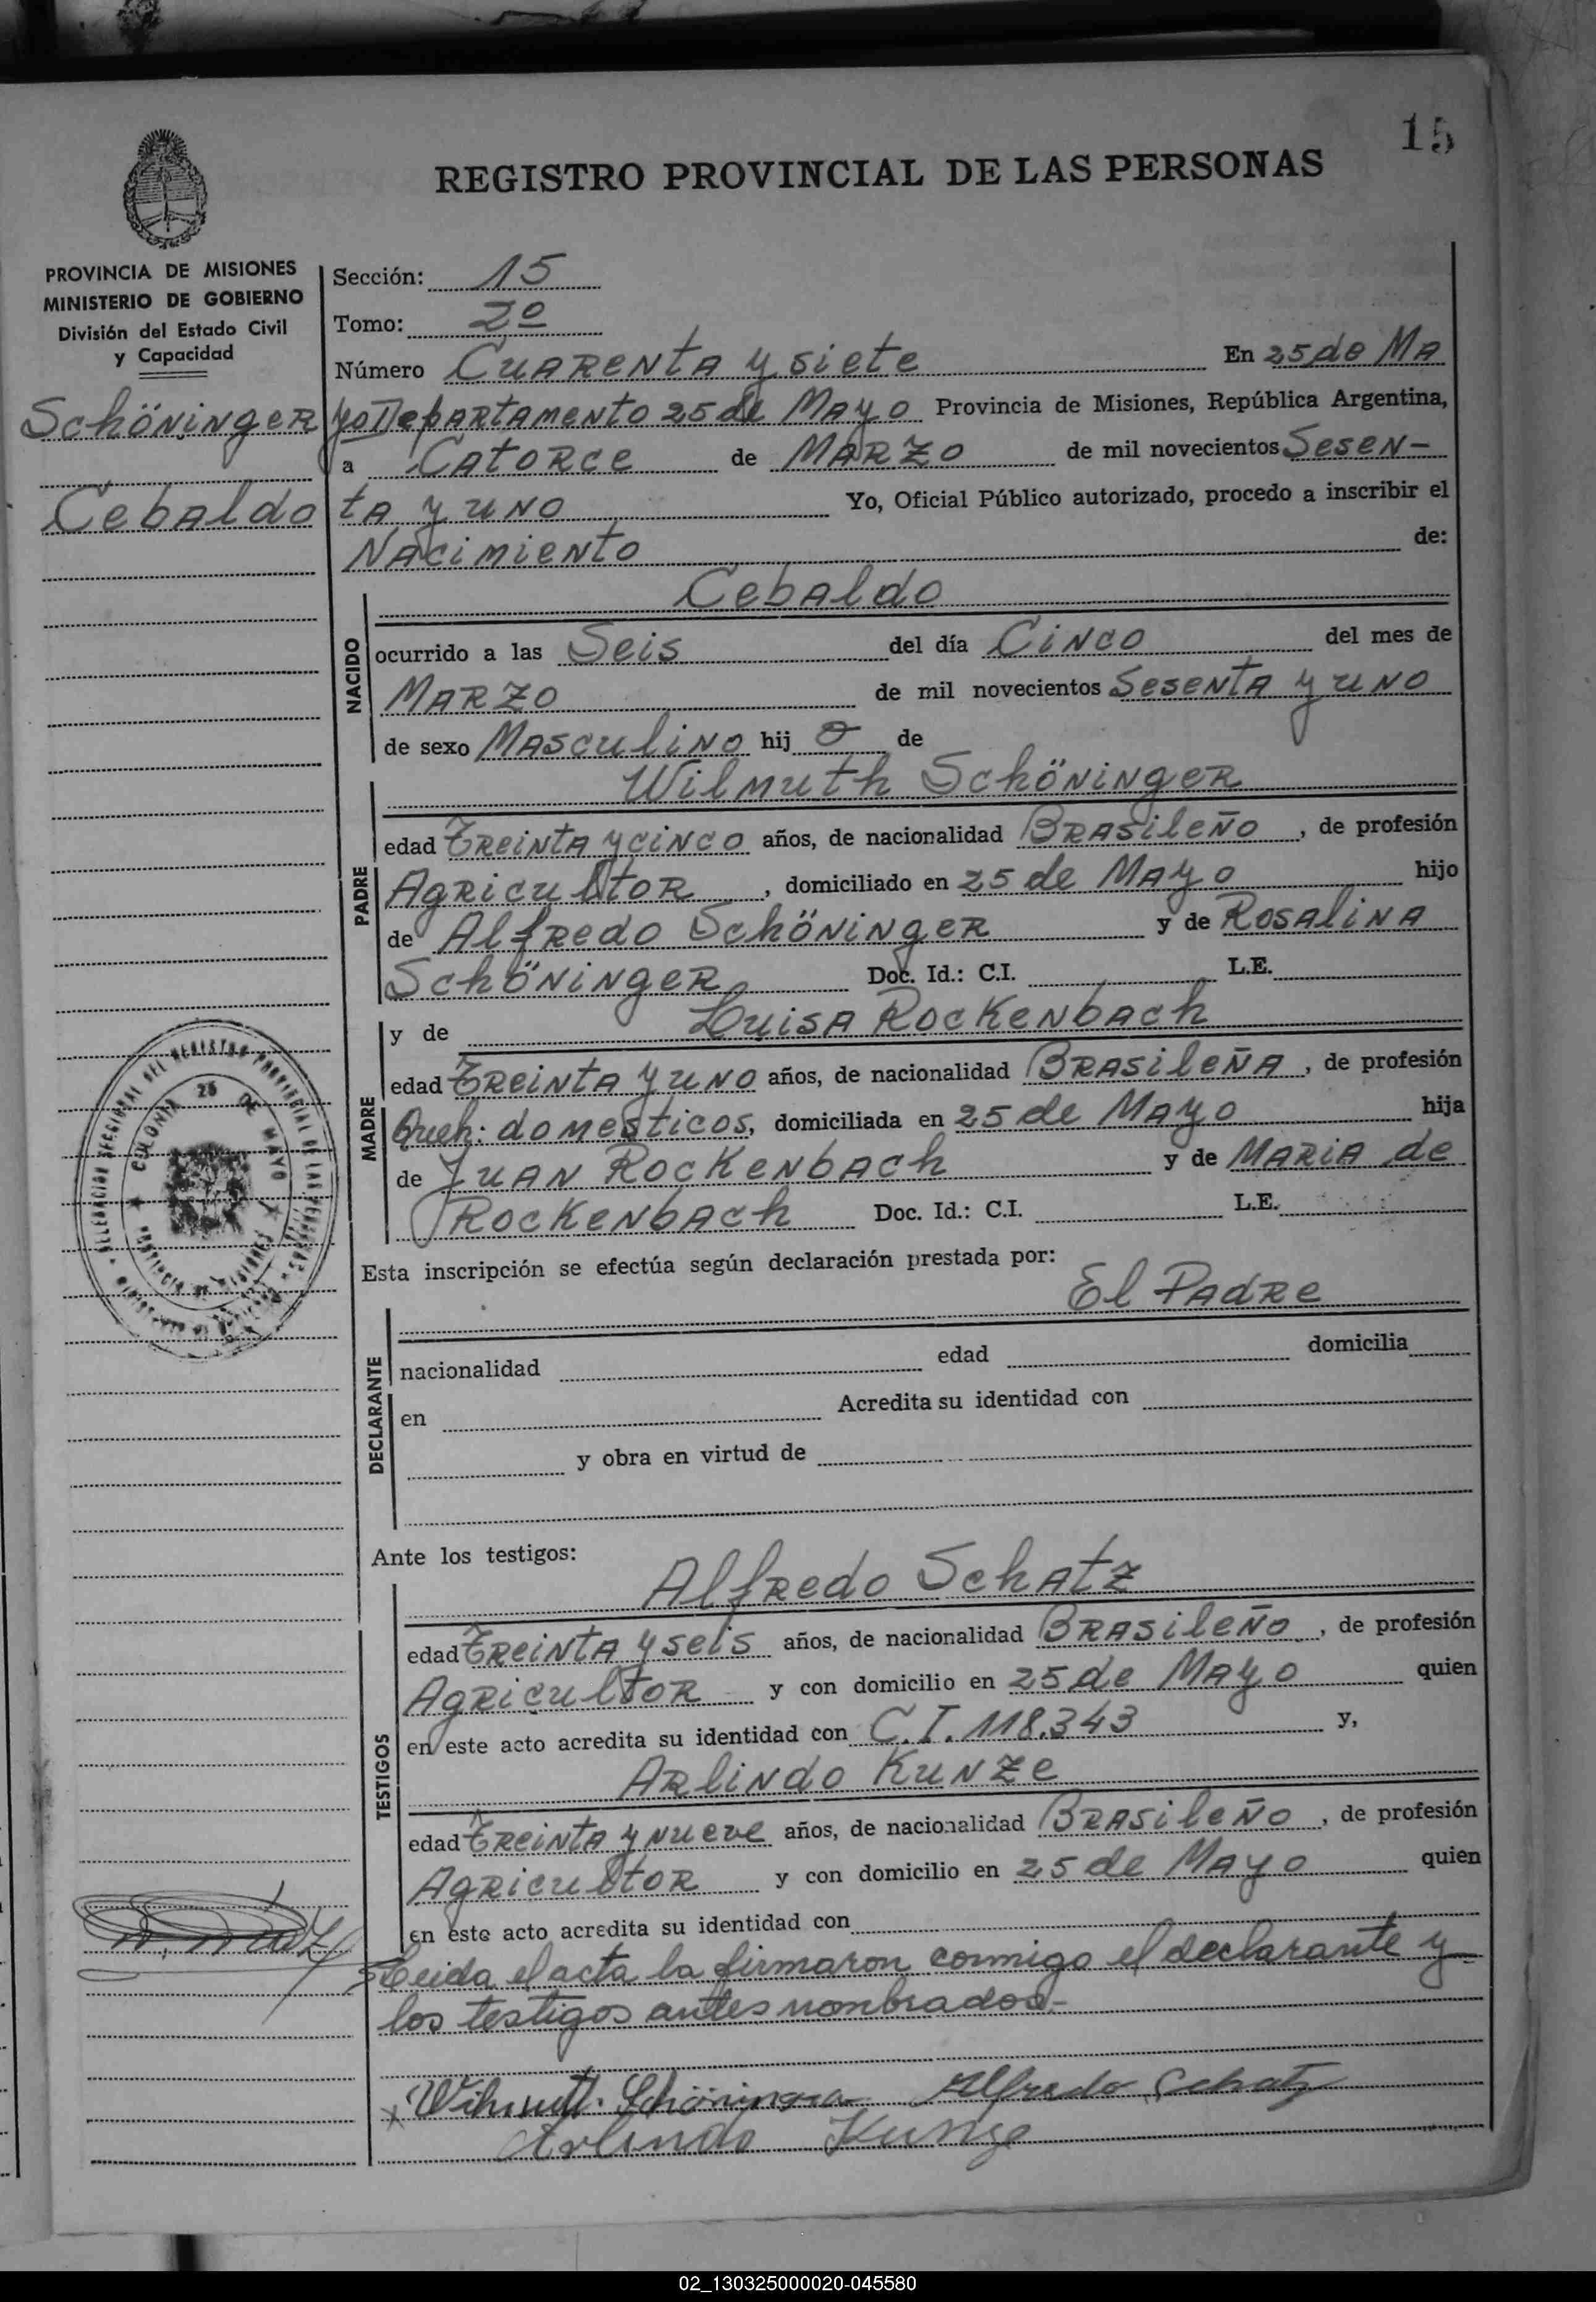 15
REGISTRO PROVINCIAL DE LAS PERSONAS
PROVINCIA DE MISIONES
MINISTERIO DE GOBIERNO
División del Estado Civil
y Capacidad
Schöninger
Cebaldo
Sección: 15
Tomo: 2º
Número Cuarenta y siete En 25 de Ma
yo Departamento 25 de Mayo Provincia de Misiones, República Argentina,
a Catorce de Marzo de mil novecientos Sesen-
ta y uno Yo, Oficial Público autorizado, procedo a inscribir el
Nacimiento de:
Cebaldo
NACIDO
ocurrido a las Seis del día Cinco del mes de
Marzo de mil novecientos Sesenta y uno
de sexo Masculino hij o de
Wilmuth Schöninger
PADRE
edad Treinta y cinco años, de nacionalidad Brasileño, de profesión
Agricultor, domiciliado en 25 de Mayo hijo
de Alfredo Schöninger y de Rosalina
Schöninger Doc. Id.: C.I. L.E.
y de Luisa Rockenbach
MADRE
edad Treinta y uno años, de nacionalidad Brasileña, de profesión
Queh. domesticos, domiciliada en 25 de Mayo hija
de Juan Rockenbach y de Maria de
Rockenbach Doc. Id.: C.I. L.E.
COLONIA 25 DE MAYO
Esta inscripción se efectúa según declaración prestada por:
El Padre
DECLARANTE
nacionalidad edad domicilia
en Acredita su identidad con
y obra en virtud de
Ante los testigos:
Alfredo Schatz
TESTIGOS
edad Treinta y seis años, de nacionalidad Brasileño, de profesión
Agricultor y con domicilio en 25 de Mayo quien
en este acto acredita su identidad con C.I. 118.343 y,
Arlindo Kunze
edad Treinta y nueve años, de nacionalidad Brasileño, de profesión
Agricultor y con domicilio en 25 de Mayo quien
en este acto acredita su identidad con
Leida el acta la firmaron conmigo el declarante y
los testigos antes nombrados.-
x Wilmuth Schöninger Alfredo Schatz
Arlindo Kunze
02_130325000020-045580